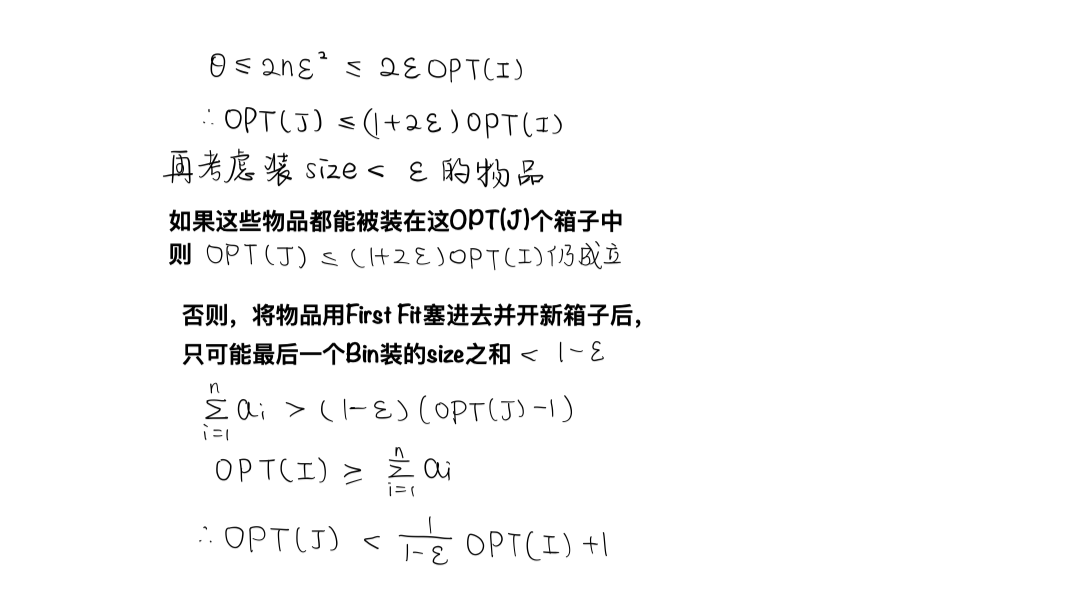 θ ≤ 2nε² ≤ 2εOPT(I)
∴ OPT(J) ≤ (1+2ε)OPT(I)
再考虑装 size < ε 的物品
如果这些物品都能被装在这OPT(J)个箱子中
则 OPT(J) ≤ (1+2ε)OPT(I)仍成立
否则，将物品用First Fit塞进去并开新箱子后，
只可能最后一个Bin装的size之和 < 1-ε
n
∑ ai > (1-ε)(OPT(J)-1)
i=1
n
OPT(I) ≥ ∑ ai
i=1
∴ OPT(J) < 1/(1-ε) OPT(I) +1